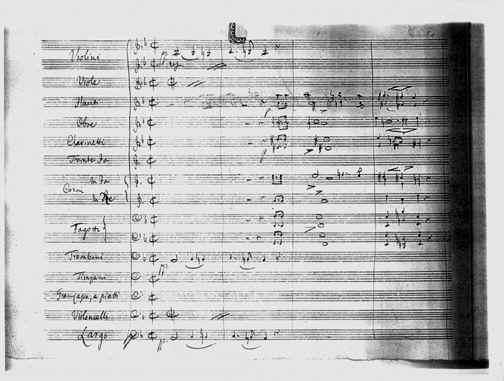 Violini
Viole
Flauti
Oboe
Clarinetti
Trombe in Fa
in Fa
Corni
Fagotti
Tromboni
Timpani
Gran Cassa, e piatti
Violoncelli
Largo